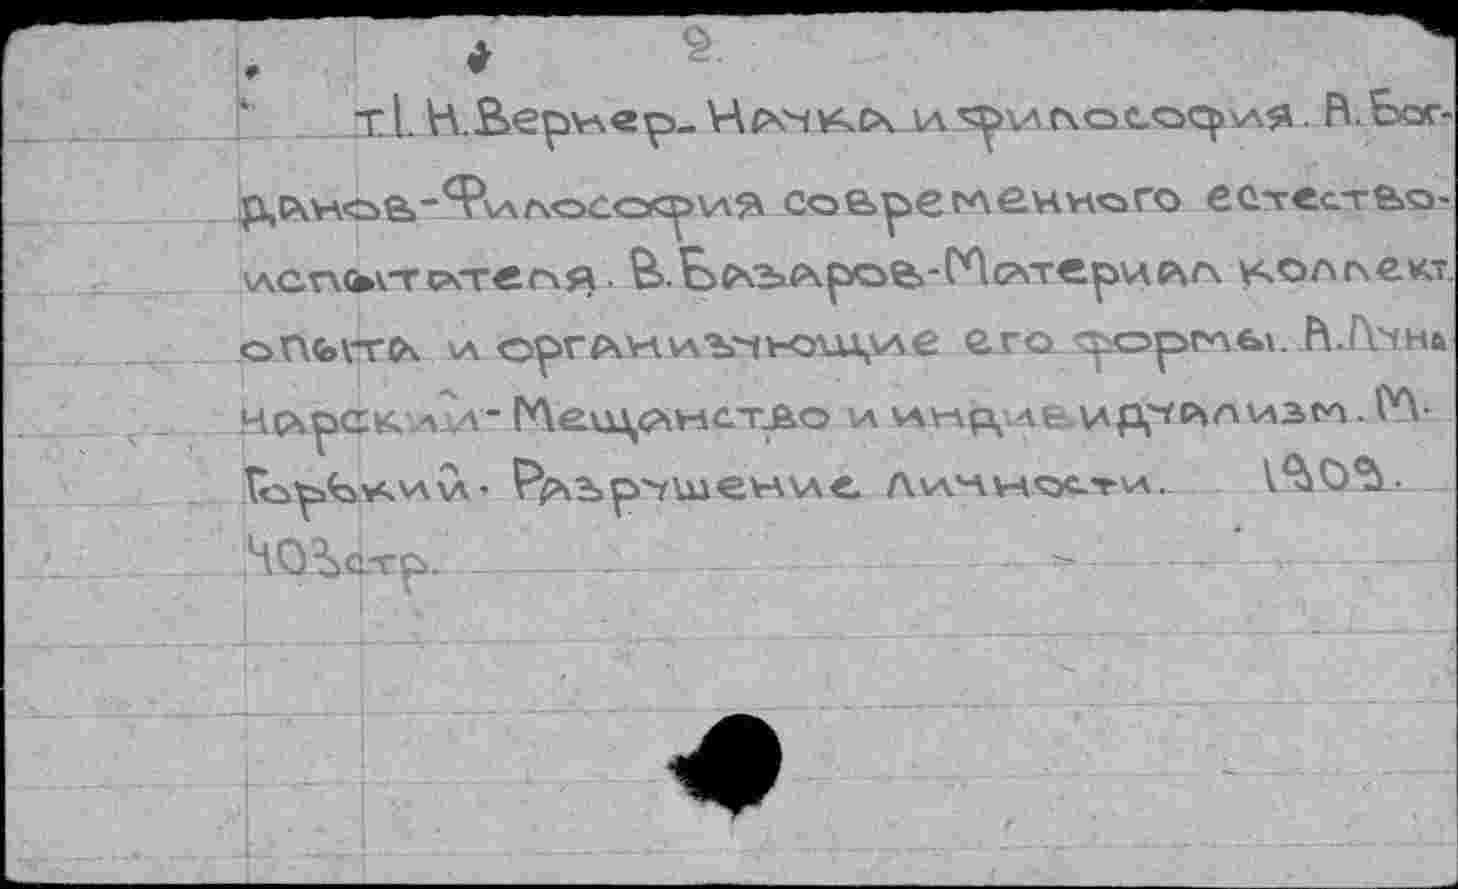 2.
т I. Н.Вернер- Наука и философия. А.Бог-
данов-Философия современного естество-
испытателя. В.Базаров-Материал коллект.
опыта и организующие его формы. А.Луна
чарский- Мещанство и индивидуализм. М.
Горький- Разрушение личности. 1909.
403стр.